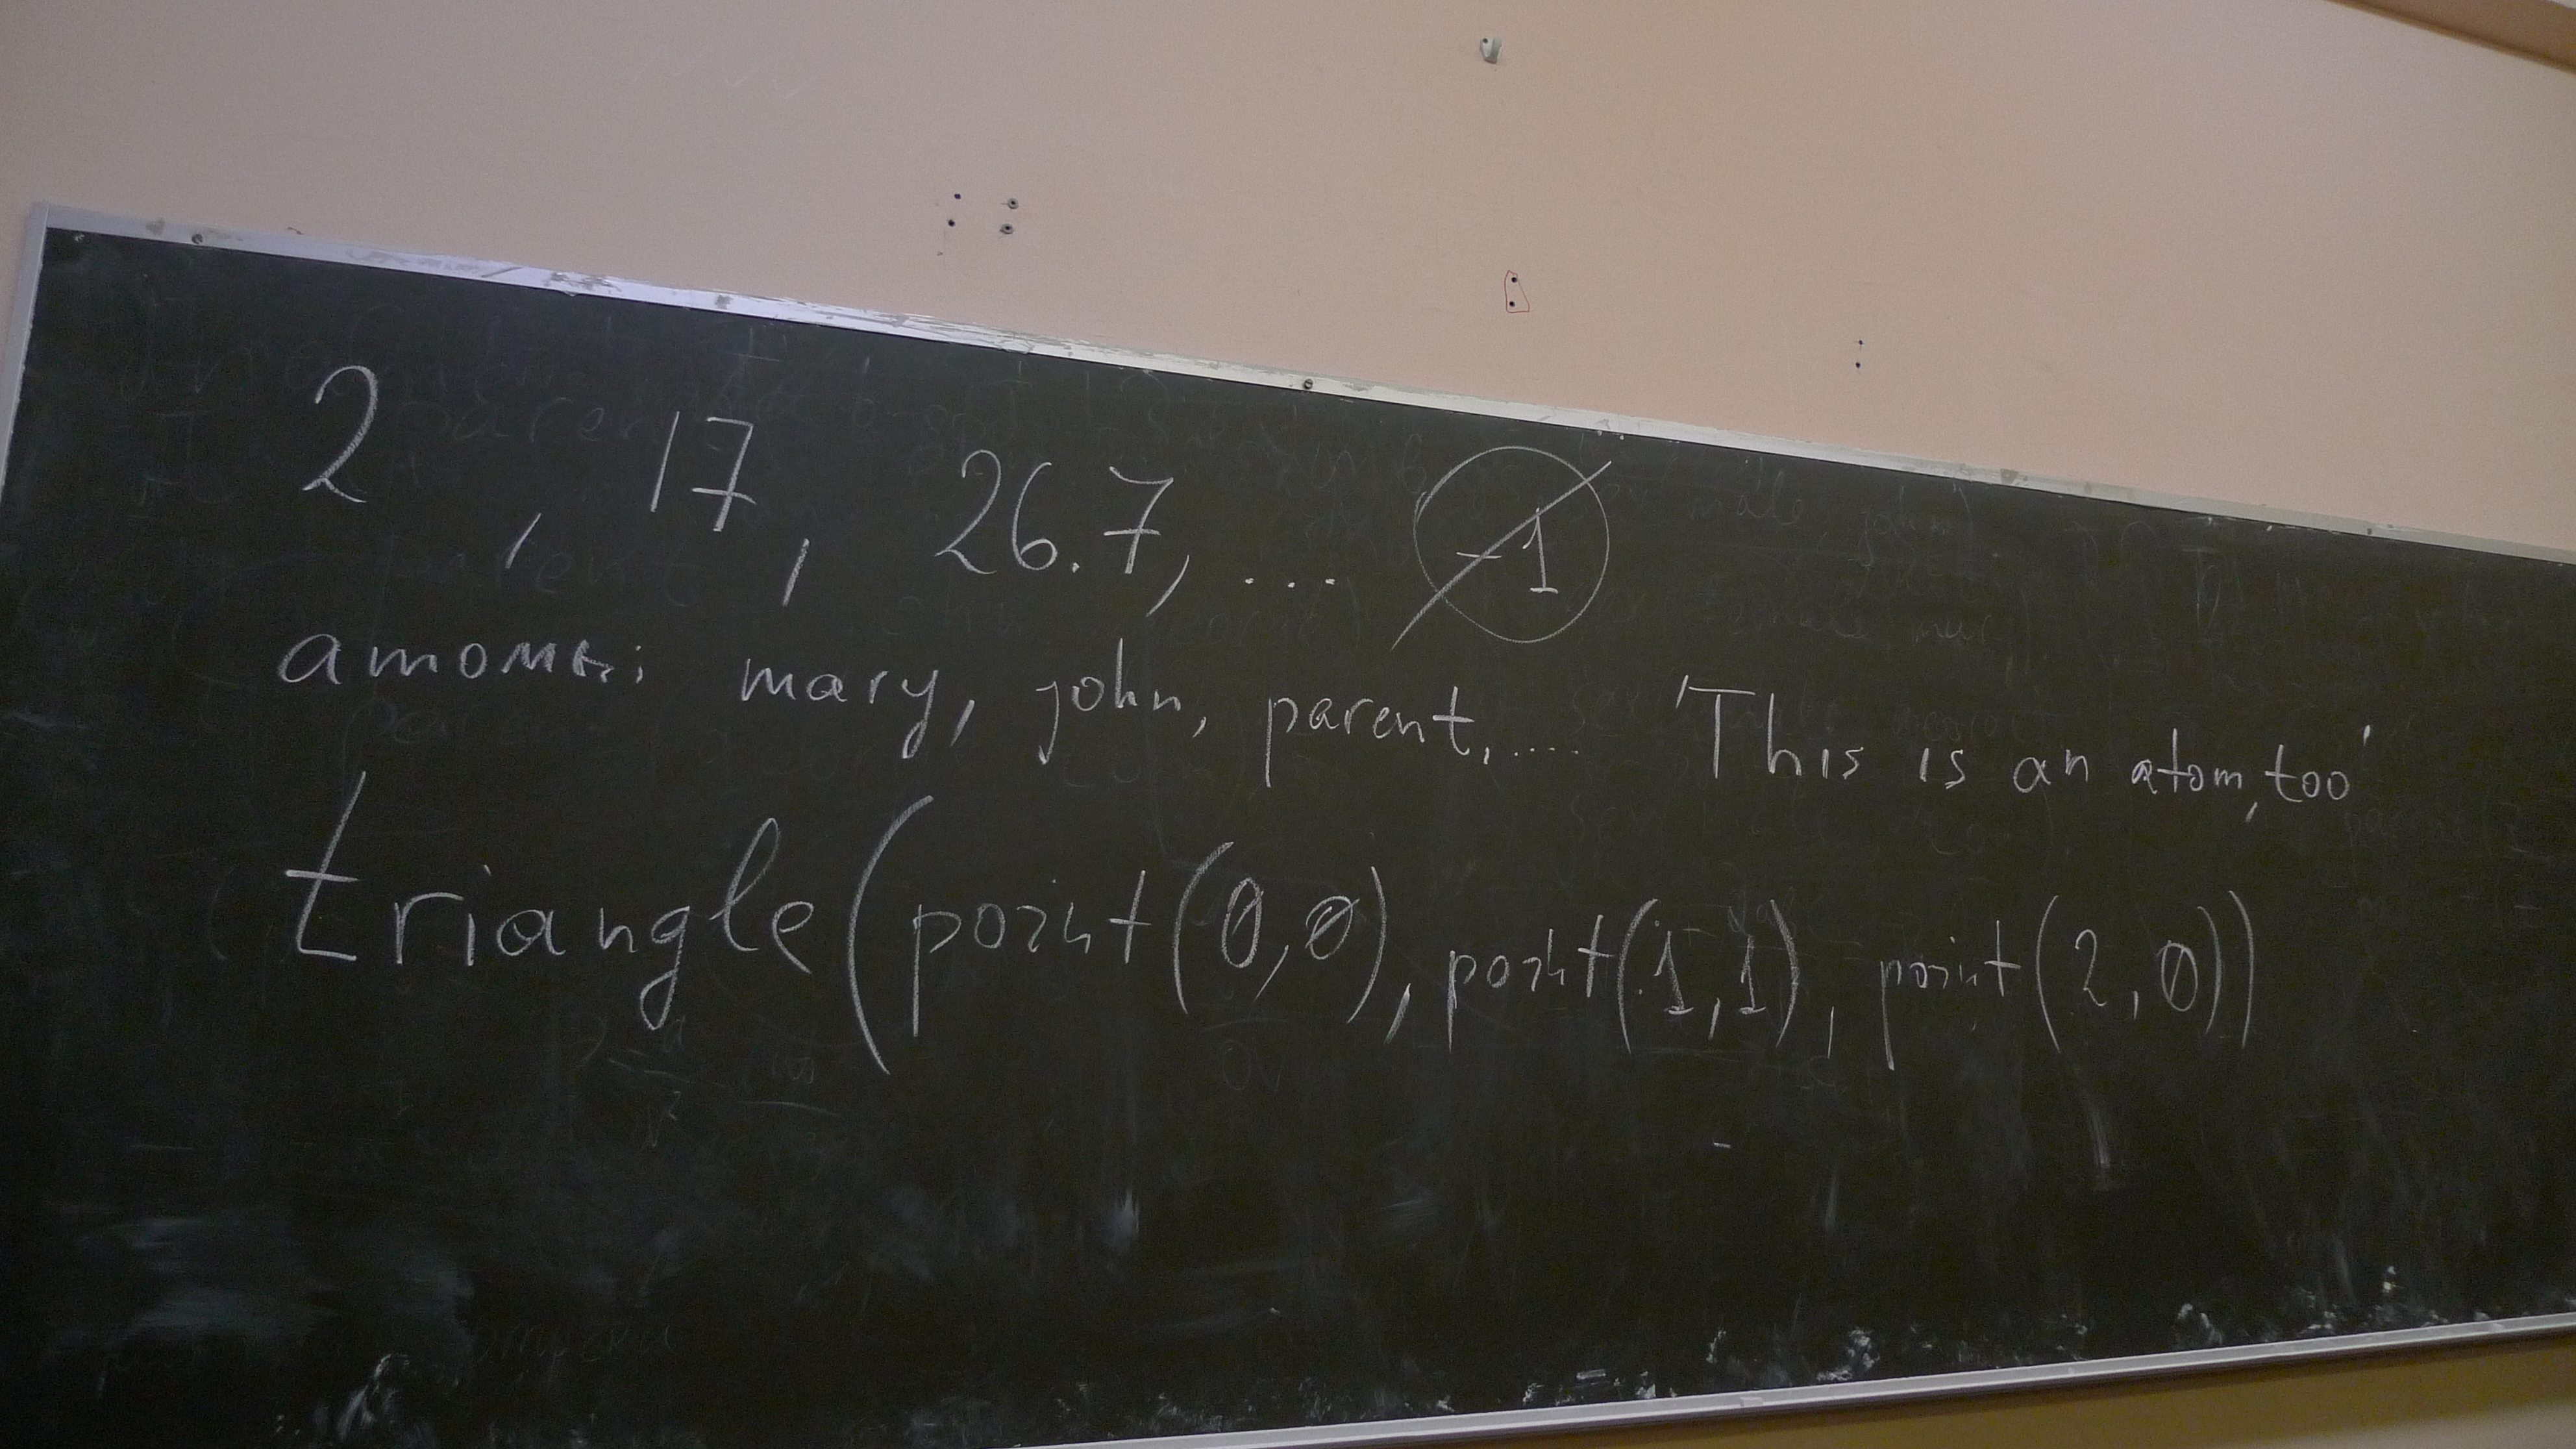 2, 17, 26.7, ... -1
атомы: mary, john, parent, .... 'This is an atom, too'
triangle(point(0,0), point(1,1), point(2,0))